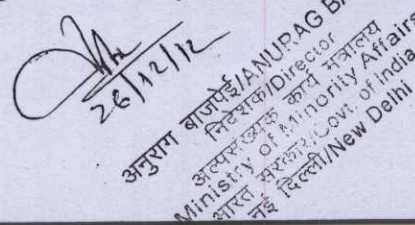 26/12/12
अनुराग बाजपेई/ANURAG
निदेशक/Director
अल्पसंख्यक कार्य मंत्रालय
Ministry of Minority Affairs
भारत सरकार/Govt. of India
नई दिल्ली/New Delhi